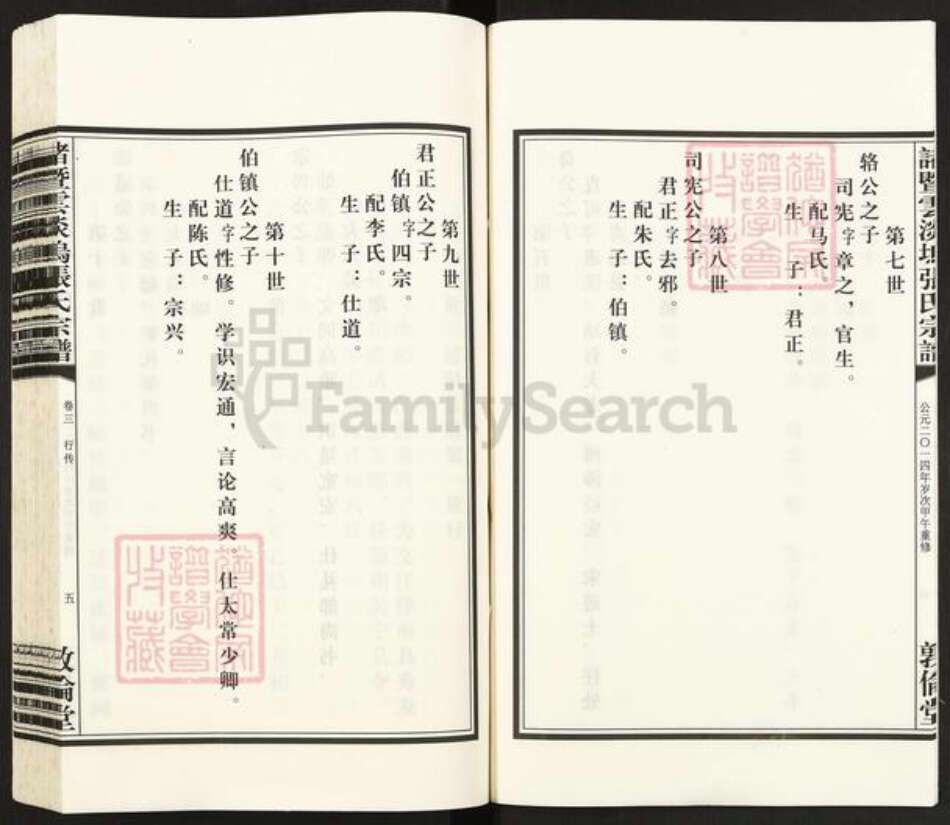 第七世
辂公之子
司宪字章之，官生。
配马氏。
生一子：君正。
第八世
司宪公之子
君正字去邪。
配朱氏。
生一子：伯镇。
公元二〇一四年岁次甲午重修
敦倫堂
第九世
君正公之子
伯镇字四宗。
配李氏。
生一子：仕道。
第十世
伯镇公之子
仕道字性修。学识宏通，言论高爽。仕太常少卿。
配陈氏。
生一子：宗兴。
張氏宗譜
卷三 行传
五
FamilySearch